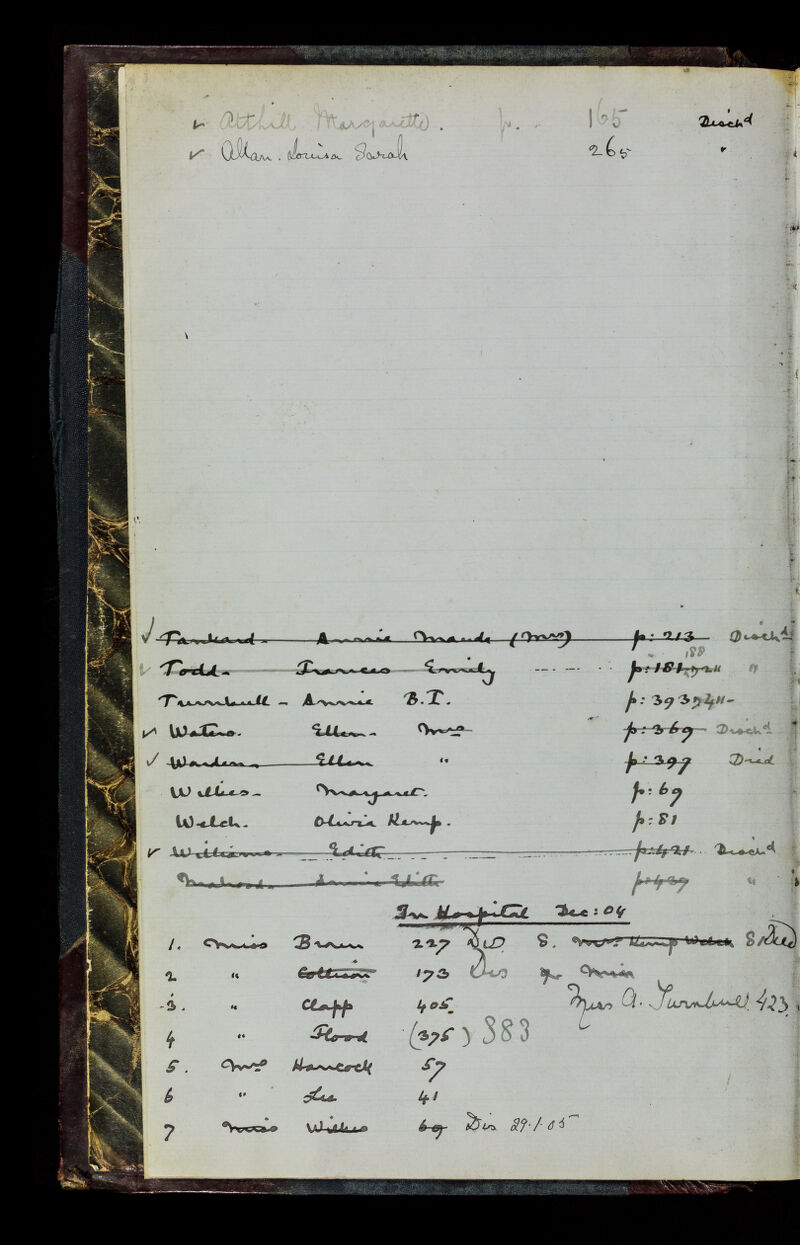 ✓ Atthill Margarette. p. - 165 Disch^d
✓ Allan. Louisa Sarah 265 "
✓ Tankard- Annie Maude (Mrs) p: 213 Disch^d
188
Todd- Frances Emily p: 181 "
Turnbull - Annie B.T. p: 393
✓ Waters. Ellen- Mrs p: 369 Disch^d
✓ Warden- Ellen " p: 397 Died
Wilkes- Margaret. p: 69
Welch. Olivia Kemp. p: 81
✓ Williams- Edith p: 421 Disch^d
Annie Edith p: 439 "
In Hospital Dec: 04
1. Miss Brown 227 Dis 8. Mrs Kemp Welch 81 Died
2 " Collison 173 Dis 9. Miss
3. " Clapp 405. Miss A. Turnbull. 423.
4 " Flood (375) 383
5. Mrs Hancock 57
6 " Lee 41
7 Miss Wilkes 69 Dis 29.1.05